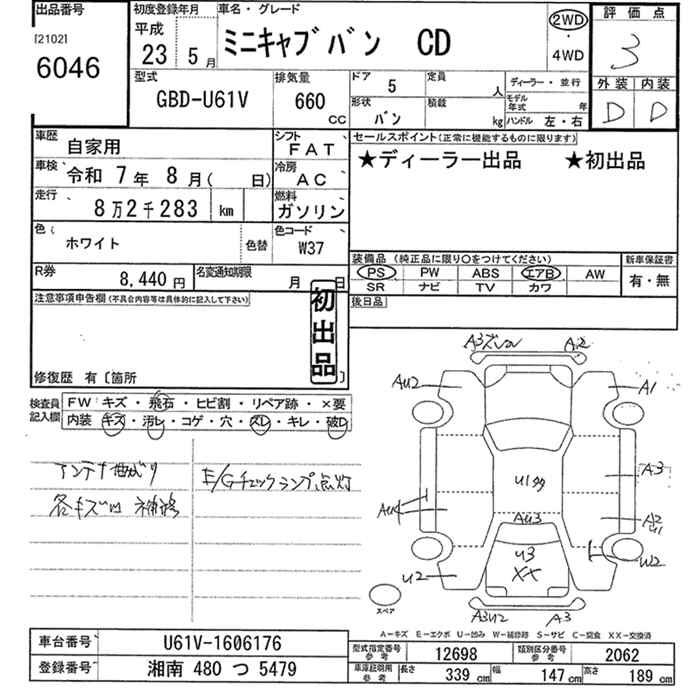 出品番号
[2102]
6046
初度登録年月
平成 23 5月
車名・グレード
ミニキャブバン CD
2WD
・
4WD
評価点
3
外装 内装
D D
型式
GBD-U61V
排気量
660 CC
ドア 5
定員 人
形状 バン
積載 kg
ディーラー・並行
モデル年式 年
ハンドル 左・右
車歴 自家用
シフト FAT
車検 令和 7年 8月( 日)
冷房 AC
走行 8万2千283 km
燃料 ガソリン
色( ホワイト 色替
色コード W37
R券 8,440円
名変通知期限 月 日
セールスポイント(正常に機能するものに限ります)
★ディーラー出品 ★初出品
装備品(純正品に限り○をつけてください)
新車保証書
PS PW ABS エアB AW
有・無
SR ナビ TV カワ
後日品
注意事項申告欄(不具合内容等は具体的に記入して下さい)
初出品
修復歴 有〔箇所 〕
検査員記入欄
FW キズ・飛石・ヒビ割・リペア跡・×要
内装 キズ・汚レ・コゲ・穴・スレ・キレ・破レ
アンテナ曲がり
各キズ凹 補修
E/Gチェックランプ点灯
A3ズレ A2
AU2 A1
U199
A3
AU4
AU3
A2
U1
U3
XX
U2 W2
A3U2 A3
スペア
A-キズ E-エクボ U-凹み W-補修跡 S-サビ C-腐食 XX-交換済
車台番号 U61V-1606176
登録番号 湘南 480 つ 5479
型式指定番号 参考 12698
類別区分番号 参考 2062
車庫証明用 参考 長さ 339cm 幅 147cm 高さ 189cm